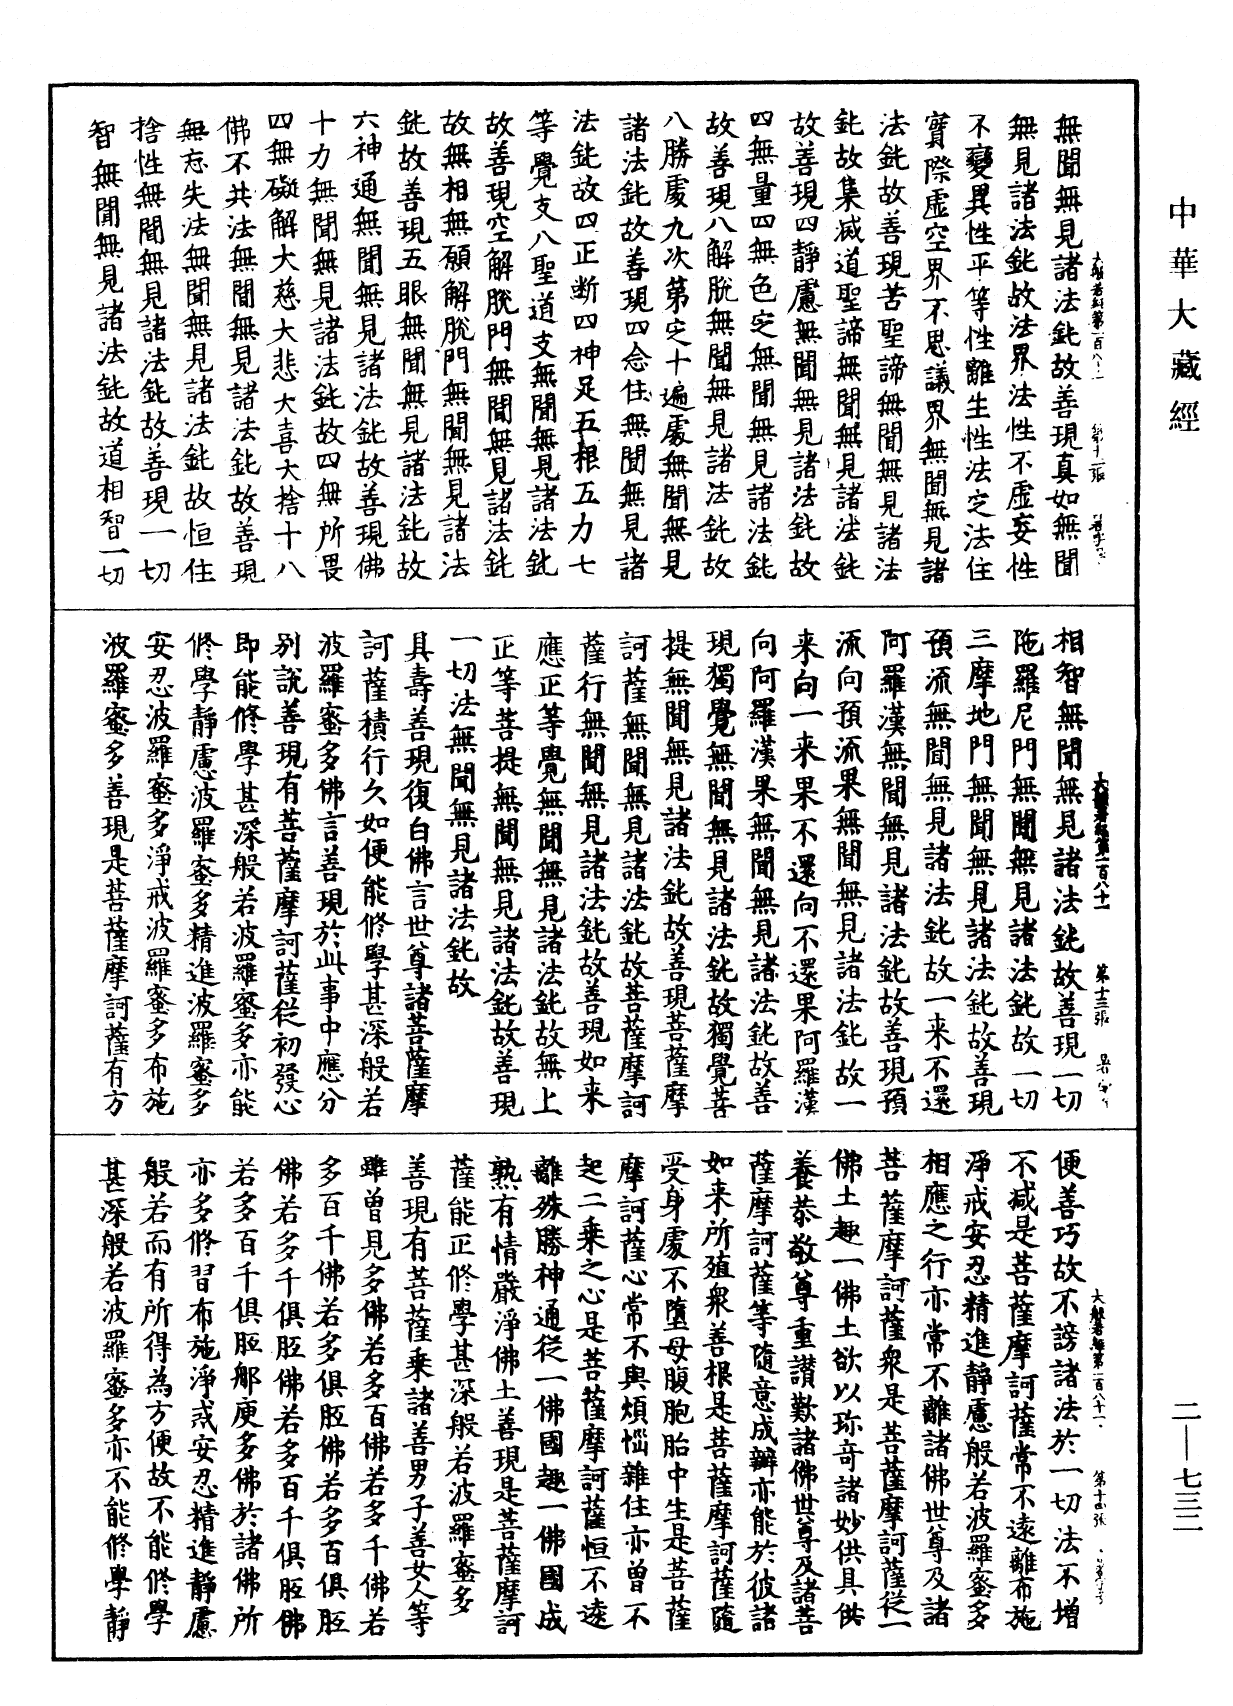 中華大藏經
無聞無見諸法鈍故善現真如無聞
無見諸法鈍故法界法性不虛妄性
不變異性平等性離生性法定法住
實際虛空界不思議界無聞無見諸
法鈍故善現苦聖諦無聞無見諸法
鈍故集滅道聖諦無聞無見諸法鈍
故善現四靜慮無聞無見諸法鈍故
四無量四無色定無聞無見諸法鈍
故善現八解脫無聞無見諸法鈍故
八勝處九次第定十遍處無聞無見
諸法鈍故善現四念住無聞無見諸
法鈍故四正斷四神足五根五力七
等覺支八聖道支無聞無見諸法鈍
故善現空解脫門無聞無見諸法鈍
故無相無願解脫門無聞無見諸法
鈍故善現五眼無聞無見諸法鈍故
六神通無聞無見諸法鈍故善現佛
十力無聞無見諸法鈍故四無所畏
四無礙解大慈大悲大喜大捨十八
佛不共法無聞無見諸法鈍故善現
無忘失法無聞無見諸法鈍故恒住
捨性無聞無見諸法鈍故善現一切
智無聞無見諸法鈍故道相智一切
大般若經第一百八十一 第十三張
相智無聞無見諸法鈍故善現一切
陁羅尼門無聞無見諸法鈍故一切
三摩地門無聞無見諸法鈍故善現
預流無聞無見諸法鈍故一来不還
阿羅漢無聞無見諸法鈍故善現預
流向預流果無聞無見諸法鈍故一
来向一来果不還向不還果阿羅漢
向阿羅漢果無聞無見諸法鈍故善
現獨覺無聞無見諸法鈍故獨覺菩
提無聞無見諸法鈍故善現菩薩摩
訶薩無聞無見諸法鈍故菩薩摩訶
薩行無聞無見諸法鈍故善現如来
應正等覺無聞無見諸法鈍故無上
正等菩提無聞無見諸法鈍故善現
一切法無聞無見諸法鈍故
具壽善現復白佛言世尊諸菩薩摩
訶薩積行久如便能修學甚深般若
波羅蜜多佛言善現於此事中應分
別說善現有菩薩摩訶薩從初發心
即能修學甚深般若波羅蜜多亦能
修學靜慮波羅蜜多精進波羅蜜多
安忍波羅蜜多淨戒波羅蜜多布施
波羅蜜多善現是菩薩摩訶薩有方
大般若經第一百八十一 第十四張
便善巧故不謗諸法於一切法不增
不減是菩薩摩訶薩常不遠離布施
淨戒安忍精進靜慮般若波羅蜜多
相應之行亦常不離諸佛世尊及諸
菩薩摩訶薩衆是菩薩摩訶薩從一
佛土趣一佛土欲以珎奇諸妙供具供
養恭敬尊重讚歎諸佛世尊及諸菩
薩摩訶薩等隨意成辦亦能於彼諸
如来所殖衆善根是菩薩摩訶薩隨
受身處不墮母腹胞胎中生是菩薩
摩訶薩心常不與煩惱雜住亦曾不
起二乘之心是菩薩摩訶薩恒不遠
離殊勝神通從一佛國趣一佛國成
熟有情嚴淨佛土善現是菩薩摩訶
薩能正修學甚深般若波羅蜜多
善現有菩薩乘諸善男子善女人等
雖曾見多佛若多百佛若多千佛若
多百千佛若多俱胝佛若多百俱胝
佛若多千俱胝佛若多百千俱胝佛
若多百千俱胝那庾多佛於諸佛所
亦多修習布施淨戒安忍精進靜慮
般若而有所得為方便故不能修學
甚深般若波羅蜜多亦不能修學靜
二—七三二